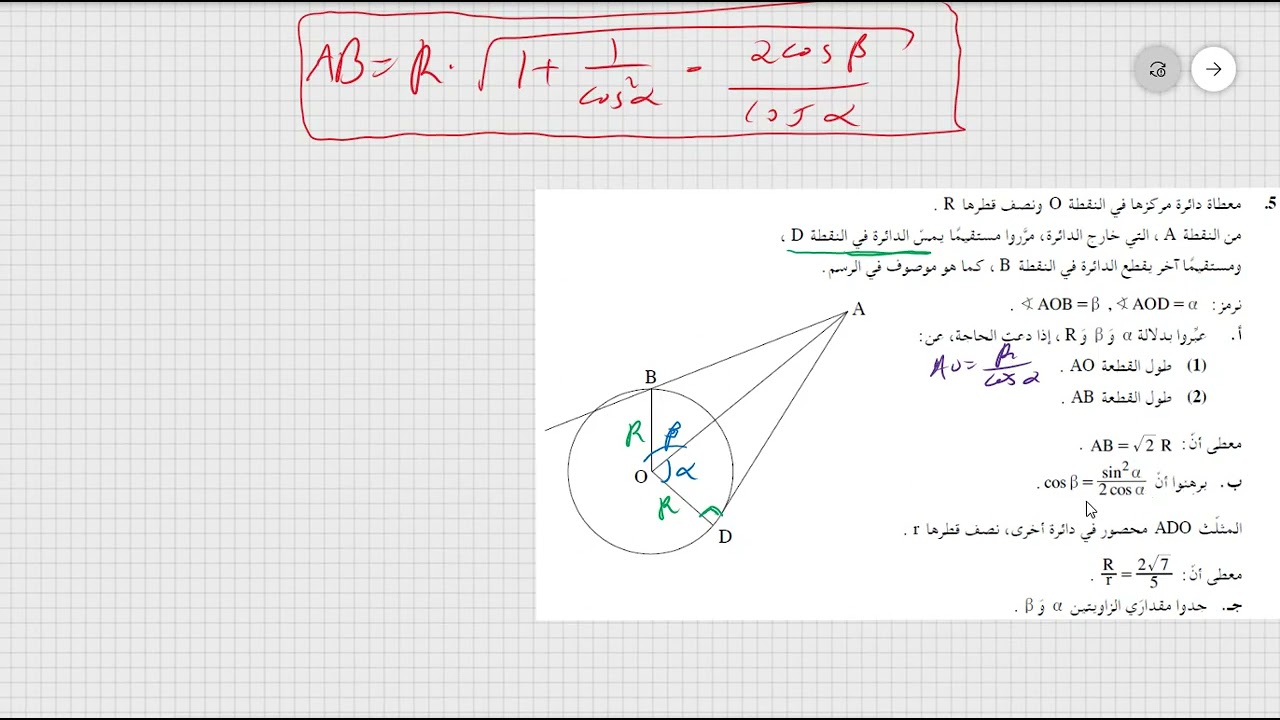 AB = R · √1 + 1/cos²α - 2cosβ/cosα
5. معطاة دائرة مركزها في النقطة O ونصف قطرها R .
من النقطة A ، التي خارج الدائرة، مرّروا مستقيمًا يمسّ الدائرة في النقطة D ،
ومستقيمًا آخر يقطع الدائرة في النقطة B ، كما هو موصوف في الرسم.
نرمز: ∢ AOB = β , ∢ AOD = α .
أ. عبِّروا بدلالة α وَ β وَ R ، إذا دعت الحاجة، عن:
(1) طول القطعة AO .
AO = R/cosα
(2) طول القطعة AB .
معطى أنّ: AB = √2 R .
ب. برهنوا أنّ cos β = sin² α / 2 cos α .
المثلّث ADO محصور في دائرة أخرى، نصف قطرها r .
معطى أنّ: R/r = 2√7/5 .
جـ. جدوا مقدارَي الزاويتين α وَ β .
A
B
R
β
O
α
R
D